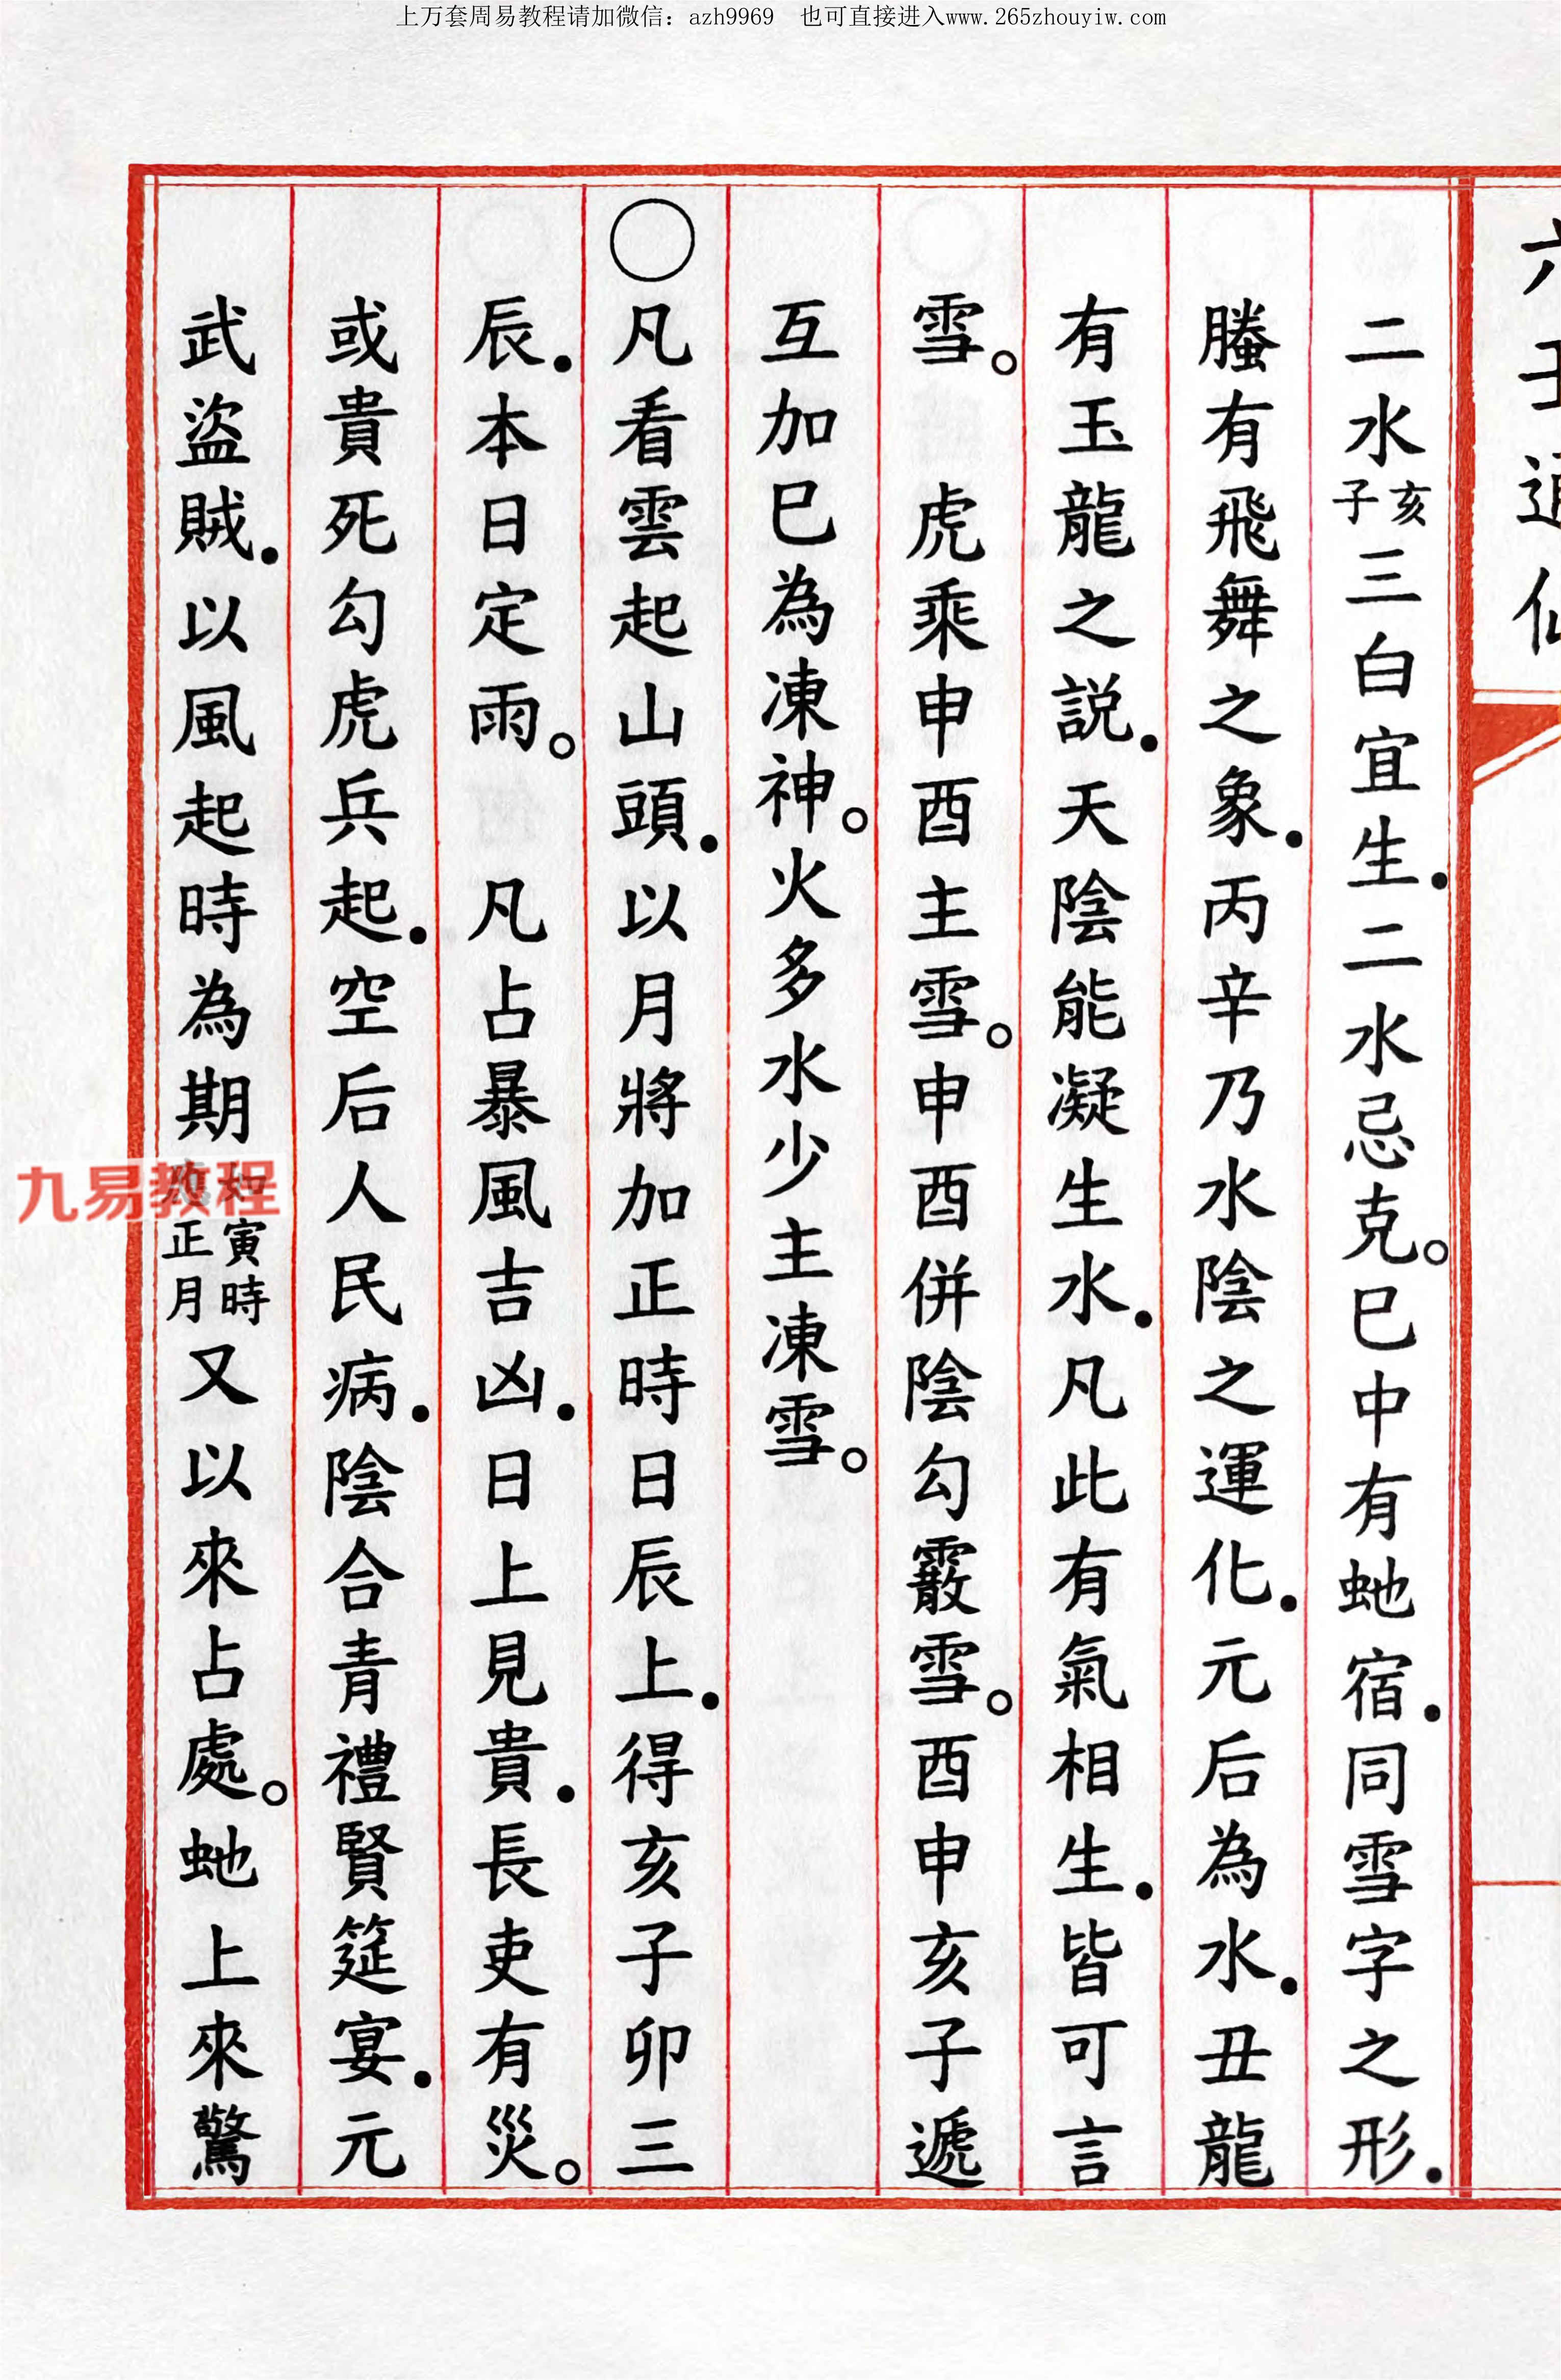 上万套周易教程请加微信：azh9969　也可直接进入www.265zhouyiw.com
六壬通仙
二水亥子三白宜生．二水忌克。巳中有虵宿．同雪字之形．
螣有飛舞之象．丙辛乃水陰之運化．元后為水．丑龍
有玉龍之説．天陰能凝生水．凡此有氣相生．皆可言
雪。　虎乘申酉主雪。申酉併陰勾霰雪。酉申亥子遞
互加巳為凍神。火多水少主凍雪。
○凡看雲起山頭．以月將加正時日辰上．得亥子卯三
辰．本日定雨。　凡占暴風吉凶．日上見貴．長吏有災。
或貴死勾虎兵起．空后人民病．陰合青禮賢筵宴．元
武盜賊．以風起時為期如寅時應正月又以來占處。虵上來驚
九易教程